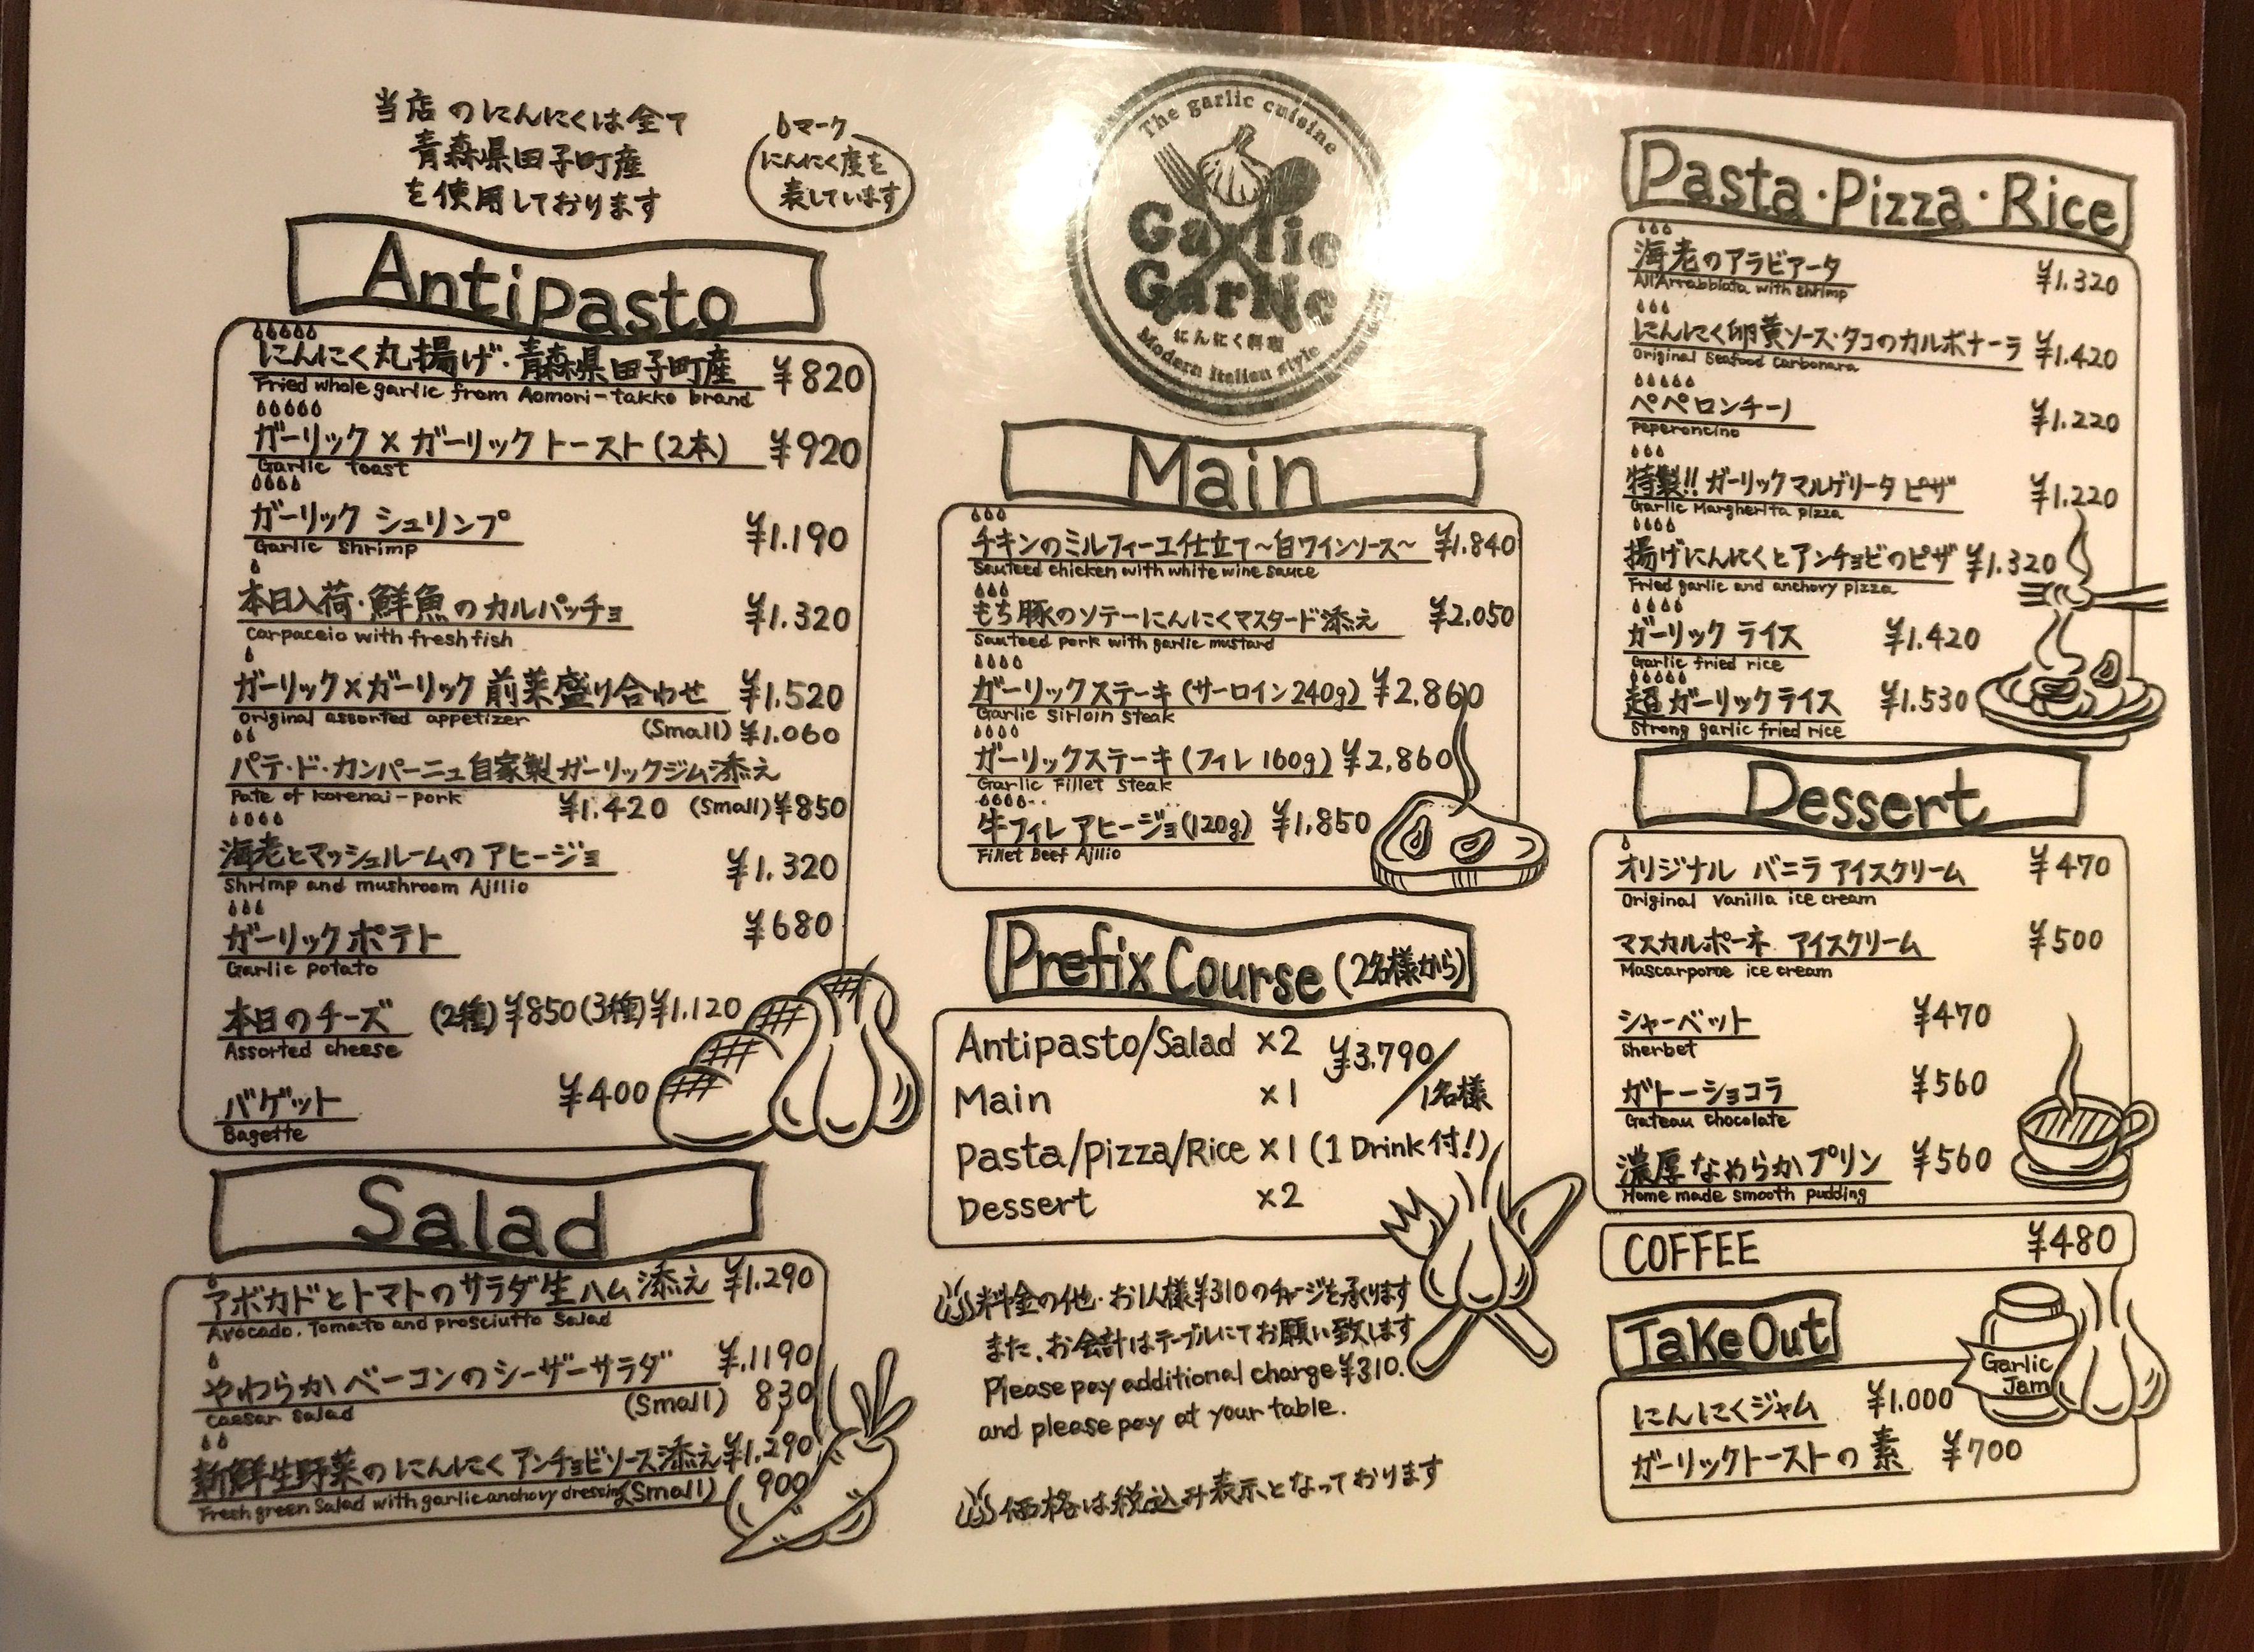 当店のにんにくは全て
青森県田子町産
を使用しております
マーク
にんにく度を
表しています
Antipasto
にんにく丸揚げ・青森県田子町産 ¥820
Fried whole garlic from Aomori-takko brand
ガーリック×ガーリックトースト(2本) ¥920
Garlic toast
ガーリック シュリンプ ¥1.190
Garlic Shrimp
本日入荷・鮮魚のカルパッチョ ¥1.320
Carpaccio with fresh fish
ガーリック×ガーリック 前菜盛り合わせ ¥1.520
Original assorted appetizer (Small) ¥1.060
パテ・ド・カンパーニュ自家製ガーリックジム添え
Pate of korenai-pork ¥1.420 (Small) ¥850
海老とマッシュルームのアヒージョ ¥1.320
Shrimp and mushroom Ajllio
ガーリックポテト ¥680
Garlic potato
本日のチーズ (2種)¥850(3種)¥1.120
Assorted cheese
バゲット ¥400
Bagette
Salad
アボカドとトマトのサラダ生ハム添え ¥1.290
Avocado. Tomato and prosciutto Salad
やわらかベーコンのシーザーサラダ ¥.1190
Caesar salad (Small) 830
新鮮生野菜のにんにくアンチョビソース添え ¥1.290
Fresh green Salad with garlic anchovy dressing (Small) 900
The garlic cuisine
Garlic
Garlic
にんにく料理
Modern Italian style
Main
チキンのミルフィーユ仕立て〜白ワインソース〜 ¥1.840
Sauteed chicken with white wine sauce
もち豚のソテーにんにくマスタード添え ¥2.050
Sauteed pork with garlic mustard
ガーリックステーキ(サーロイン240g) ¥2.860
Garlic Sirloin Steak
ガーリックステーキ(フィレ160g) ¥2,860
Garlic Fillet Steak
牛フィレアヒージョ(120g) ¥1,850
Fillet Beef Ajllio
Prefix Course (2名様から)
Antipasto/Salad ×2 ¥3.790/1名様
Main ×1
Pasta/Pizza/Rice ×1 (1 Drink付!)
Dessert ×2
料金の他・お1人様¥310のチャージを承ります
また、お会計はテーブルにてお願い致します
Please pay additional charge ¥310.
and please pay at your table.
価格は税込み表示となっております
Pasta・Pizza・Rice
海老のアラビアータ ¥1.320
All'Arrabbiata with shrimp
にんにく卵黄ソース・タコのカルボナーラ ¥1.420
Original Seafood Carbonara
ペペロンチーノ ¥1.220
Peperoncino
特製!! ガーリックマルゲリータピザ ¥1.220
Garlic Margherita pizza
揚げにんにくとアンチョビのピザ ¥1.320
Fried garlic and anchovy pizza
ガーリックライス ¥1.420
Garlic fried rice
超ガーリックライス ¥1.530
Strong garlic fried rice
Dessert
オリジナル バニラ アイスクリーム ¥470
Original Vanilla ice cream
マスカルポーネ アイスクリーム ¥500
Mascarpone ice cream
シャーベット ¥470
Sherbet
ガトーショコラ ¥560
Gateau chocolate
濃厚なめらかプリン ¥560
Home made smooth pudding
COFFEE ¥480
Take Out
Garlic
Jam
にんにくジャム ¥1.000
ガーリックトーストの素 ¥700